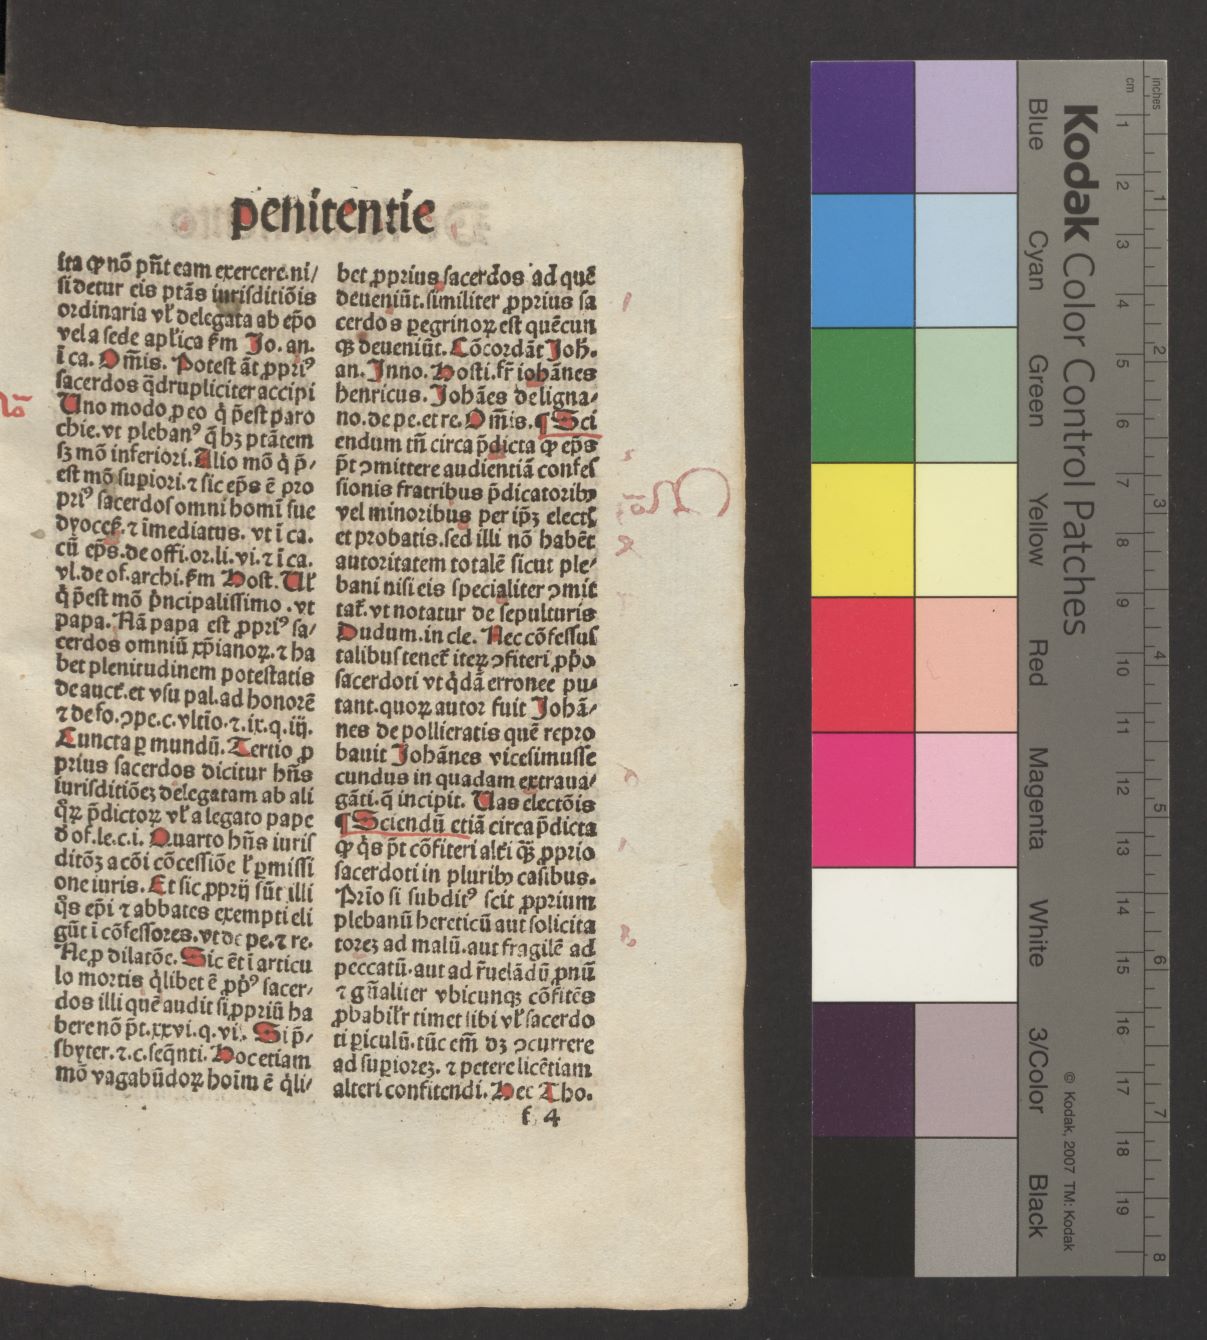 penitentie
ita ꝙ nō pn̄t eam exercere.ni/
si detur eis ptās iurisditiōis
ordinaria vl̓ delegata ab ep̄o
vel a sede apl̓ica ẜm Jo. an.
ī ca. Om̄is. Potest āt ꝓpriꝰ
sacerdos q̄drupliciter accipi
Uno modo ꝓ eo q̇ p̄est paro
chie. vt plebanꝰ q̄ hꝫ ptātem
sꝫ mō inferiori. Alio mō q̇ p̄/
est mō supiori. ⁊ sic ep̄s ē ꝓ
priꝰ sacerdos omni homī sue
dyoceẜ. ⁊ īmediatus. vt ī ca.
cū ep̄s. de offi.or.li.vi. ⁊ ī ca.
vl. de of. archi. ẜm Host. Ul̓
q̇ p̄est mō p̓ncipalissimo . vt
papa. Nā papa est ꝓpriꝰ sa/
cerdos omniū xp̄ianoꝝ. ⁊ ha
bet plenitudinem potestatis
de auct̄. et vsu pal. ad honorē
⁊ de fo. ↄpe. c. vltio. ⁊. ix. q. iij.
Cuncta ꝑ mundū. Tertio ꝓ
prius sacerdos dicitur hn̄s
iurisditiōeꝫ delegatam ab ali
q̇ꝝ p̄dictoꝝ vl̓ a legato pape
d̓ of. le. c. i. Quarto hn̄s iuris
ditōꝫ a cōi cōcessiōe l̓ ꝑmissi
one iuris. Et sic ꝓprij sūt illi
q̇s ep̄i ⁊ abbates exempti eli
gūt ī cōfessores. vt de pe. ⁊ re.
Ne ꝓ dilatōe. Sic ēt ī articu
lo mortis q̇libet ē ꝓp̓ꝰ sacer/
dos illi quē audit si ꝓpriū ha
bere nō p̄t. xxvi. q. vi. Si p̄/
sbyter. ⁊. c. seq̄nti. Hoc etiam
mō vagabūdoꝝ hoīm ē q̇li/
bet ꝓprius sacerdos ad quē
deueniūt. similiter ꝓprius sa
cerdos peregrinoꝝ est quēcun
qꝫ deueniūt. Cōcordāt Joh̄.
an. Inno. Hosti. fr̄ iohānes
henricus. Johāes de ligna/
no. de pe. et re. Om̄is. ¶ Sci
endum tn̄ circa p̄dicta ꝙ ep̄s
p̄t ↄmittere audientiā confes
sionis fratribus p̄dicatoribꝰ
vel minoribus per ip̄ꝫ elect̄
et probatis. sed illi nō habēt
autoritatem totalē sicut ple/
bani nisi eis specialiter ↄmit
tat̄. vt notatur de sepulturis
Dudum. in cle. Nec cōfessus
talibus tenet̄ iteꝝ ↄfiteri ꝓp̓o
sacerdoti vt q̇dā erronee pu/
tant. quoꝝ autor fuit Johā/
nes de pollieratis quē repro
bauit Johānes vicesimusse
cundus in quadam extraua/
gāti. q̄ incipit. Uas electōis
¶ Sciendū etiā circa p̄dicta
ꝙ q̇s p̄t cōfiteri alt̓i q̄ꝫ ꝓprio
sacerdoti in pluribꝰ casibus.
Prīo si subditꝰ scit ꝓprium
plebanū hereticū aut solicita
toreꝫ ad malū. aut fragilē ad
peccatū. aut ad r̄uelādū ꝓnū
⁊ gn̄aliter vbicunqꝫ cōfitēs
ꝓbabilr̄ timet sibi vl̓ sacerdo
ti ꝑiculū. tūc em̄ dꝫ ↄcurrere
ad supioreꝫ. ⁊ petere licētiam
alteri confitendi. Hec Tho.
f 4
Kodak Color Control Patches
Blue
Cyan
Green
Yellow
Red
Magenta
White
3/Color
Black
© Kodak, 2007 TM: Kodak
inches 1 2 3 4 5 6 7 8
cm 1 2 3 4 5 6 7 8 9 10 11 12 13 14 15 16 17 18 19